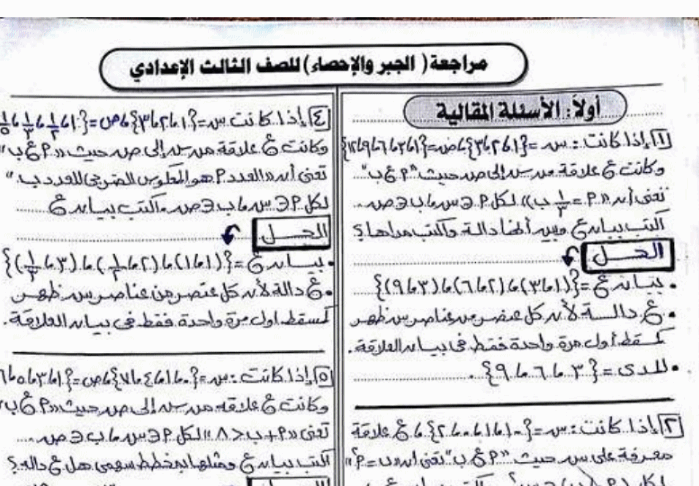 مراجعة ( الجبر والإحصاء ) للصف الثالث الإعدادي
أولاً: الأسئلة المقالية
١ إذا كانت : س = {١، ٢، ٣}، ص = {١، ٣، ٦، ٩، ١٢}
وكانت ع علاقة من س إلى ص حيث "أ ع ب"
تعني أن "أ = ١/٣ ب" لكل أ ∈ س، ب ∈ ص
اكتب بيان ع وبين أنها دالة واكتب مداها ؟
الحل
• بيان ع = {(١، ٣)، (٢، ٦)، (٣، ٩)}
• ع دالة لأن كل عنصر من عناصر س ظهر
كمسقط أول مرة واحدة فقط في بيان العلاقة.
• المدى = {٣، ٦، ٩}.
٢ إذا كانت : س = {-١، ١، ٠، ٢}، ع علاقة
معرفة على س حيث "أ ع ب" تعني أن
٤ إذا كانت س = {١، ٢، ٣}، ص = {١، ١/٢، ١/٣، ١/٥
وكانت ع علاقة من س إلى ص حيث "أ ع ب"
تعني أن "العدد أ هو المعكوس الضربي للعدد ب"
لكل أ ∈ س، ب ∈ ص اكتب بيان ع
الحل
• بيان ع = {(١، ١)، (٢، ١/٢)، (٣، ١/٣)}
• ع دالة لأن كل عنصر من عناصر س ظهر
كمسقط أول مرة واحدة فقط في بيان العلاقة.
٥ إذا كانت : س = {٠، ١، ٤، ٧}، ص = {١، ٣، ٥، ٦
وكانت ع علاقة من س إلى ص حيث "أ ع ب"
تعني "أ + ب < ٨" لكل أ ∈ س، ب ∈ ص
اكتب بيان ع ومثلها بمخطط سهمي هل ع دالة ؟
الحل